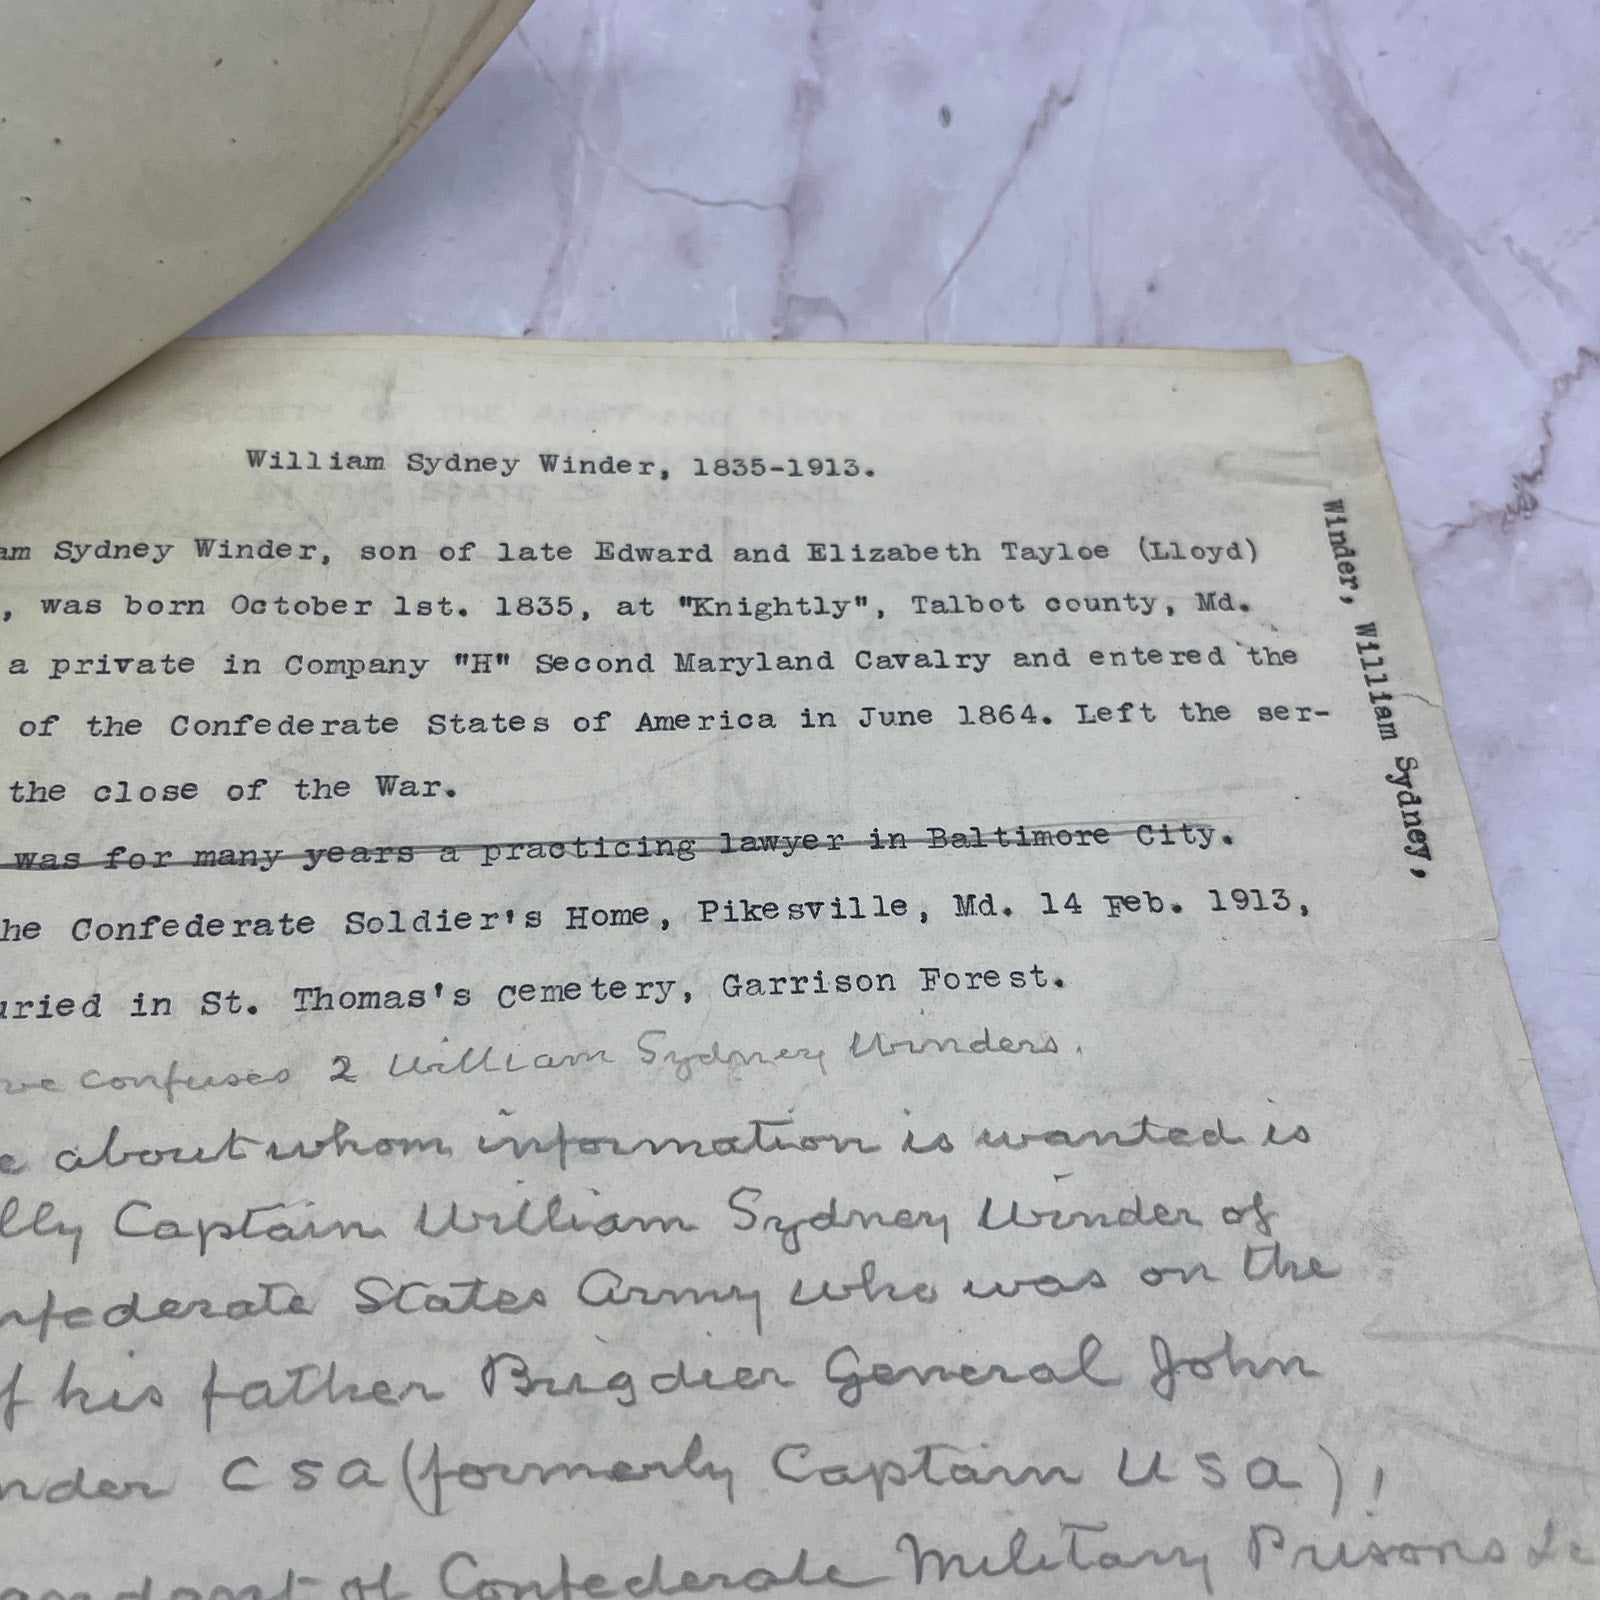 William Sydney Winder, 1835-1913.
am Sydney Winder, son of late Edward and Elizabeth Tayloe (Lloyd)
, was born October 1st. 1835, at "Knightly", Talbot county, Md.
a private in Company "H" Second Maryland Cavalry and entered the
of the Confederate States of America in June 1864. Left the ser-
the close of the War.
was for many years a practicing lawyer in Baltimore City.
he Confederate Soldier's Home, Pikesville, Md. 14 Feb. 1913,
uried in St. Thomas's Cemetery, Garrison Forest.
ve confuses 2 William Sydney Winders.
e about whom information is wanted is
lly Captain William Sydney Winder of
nfederate States Army who was on the
f his father Brigdier General John
nder CSA (formerly Captain USA),
of Confederate Military Prisons
Winder, William Sydney,